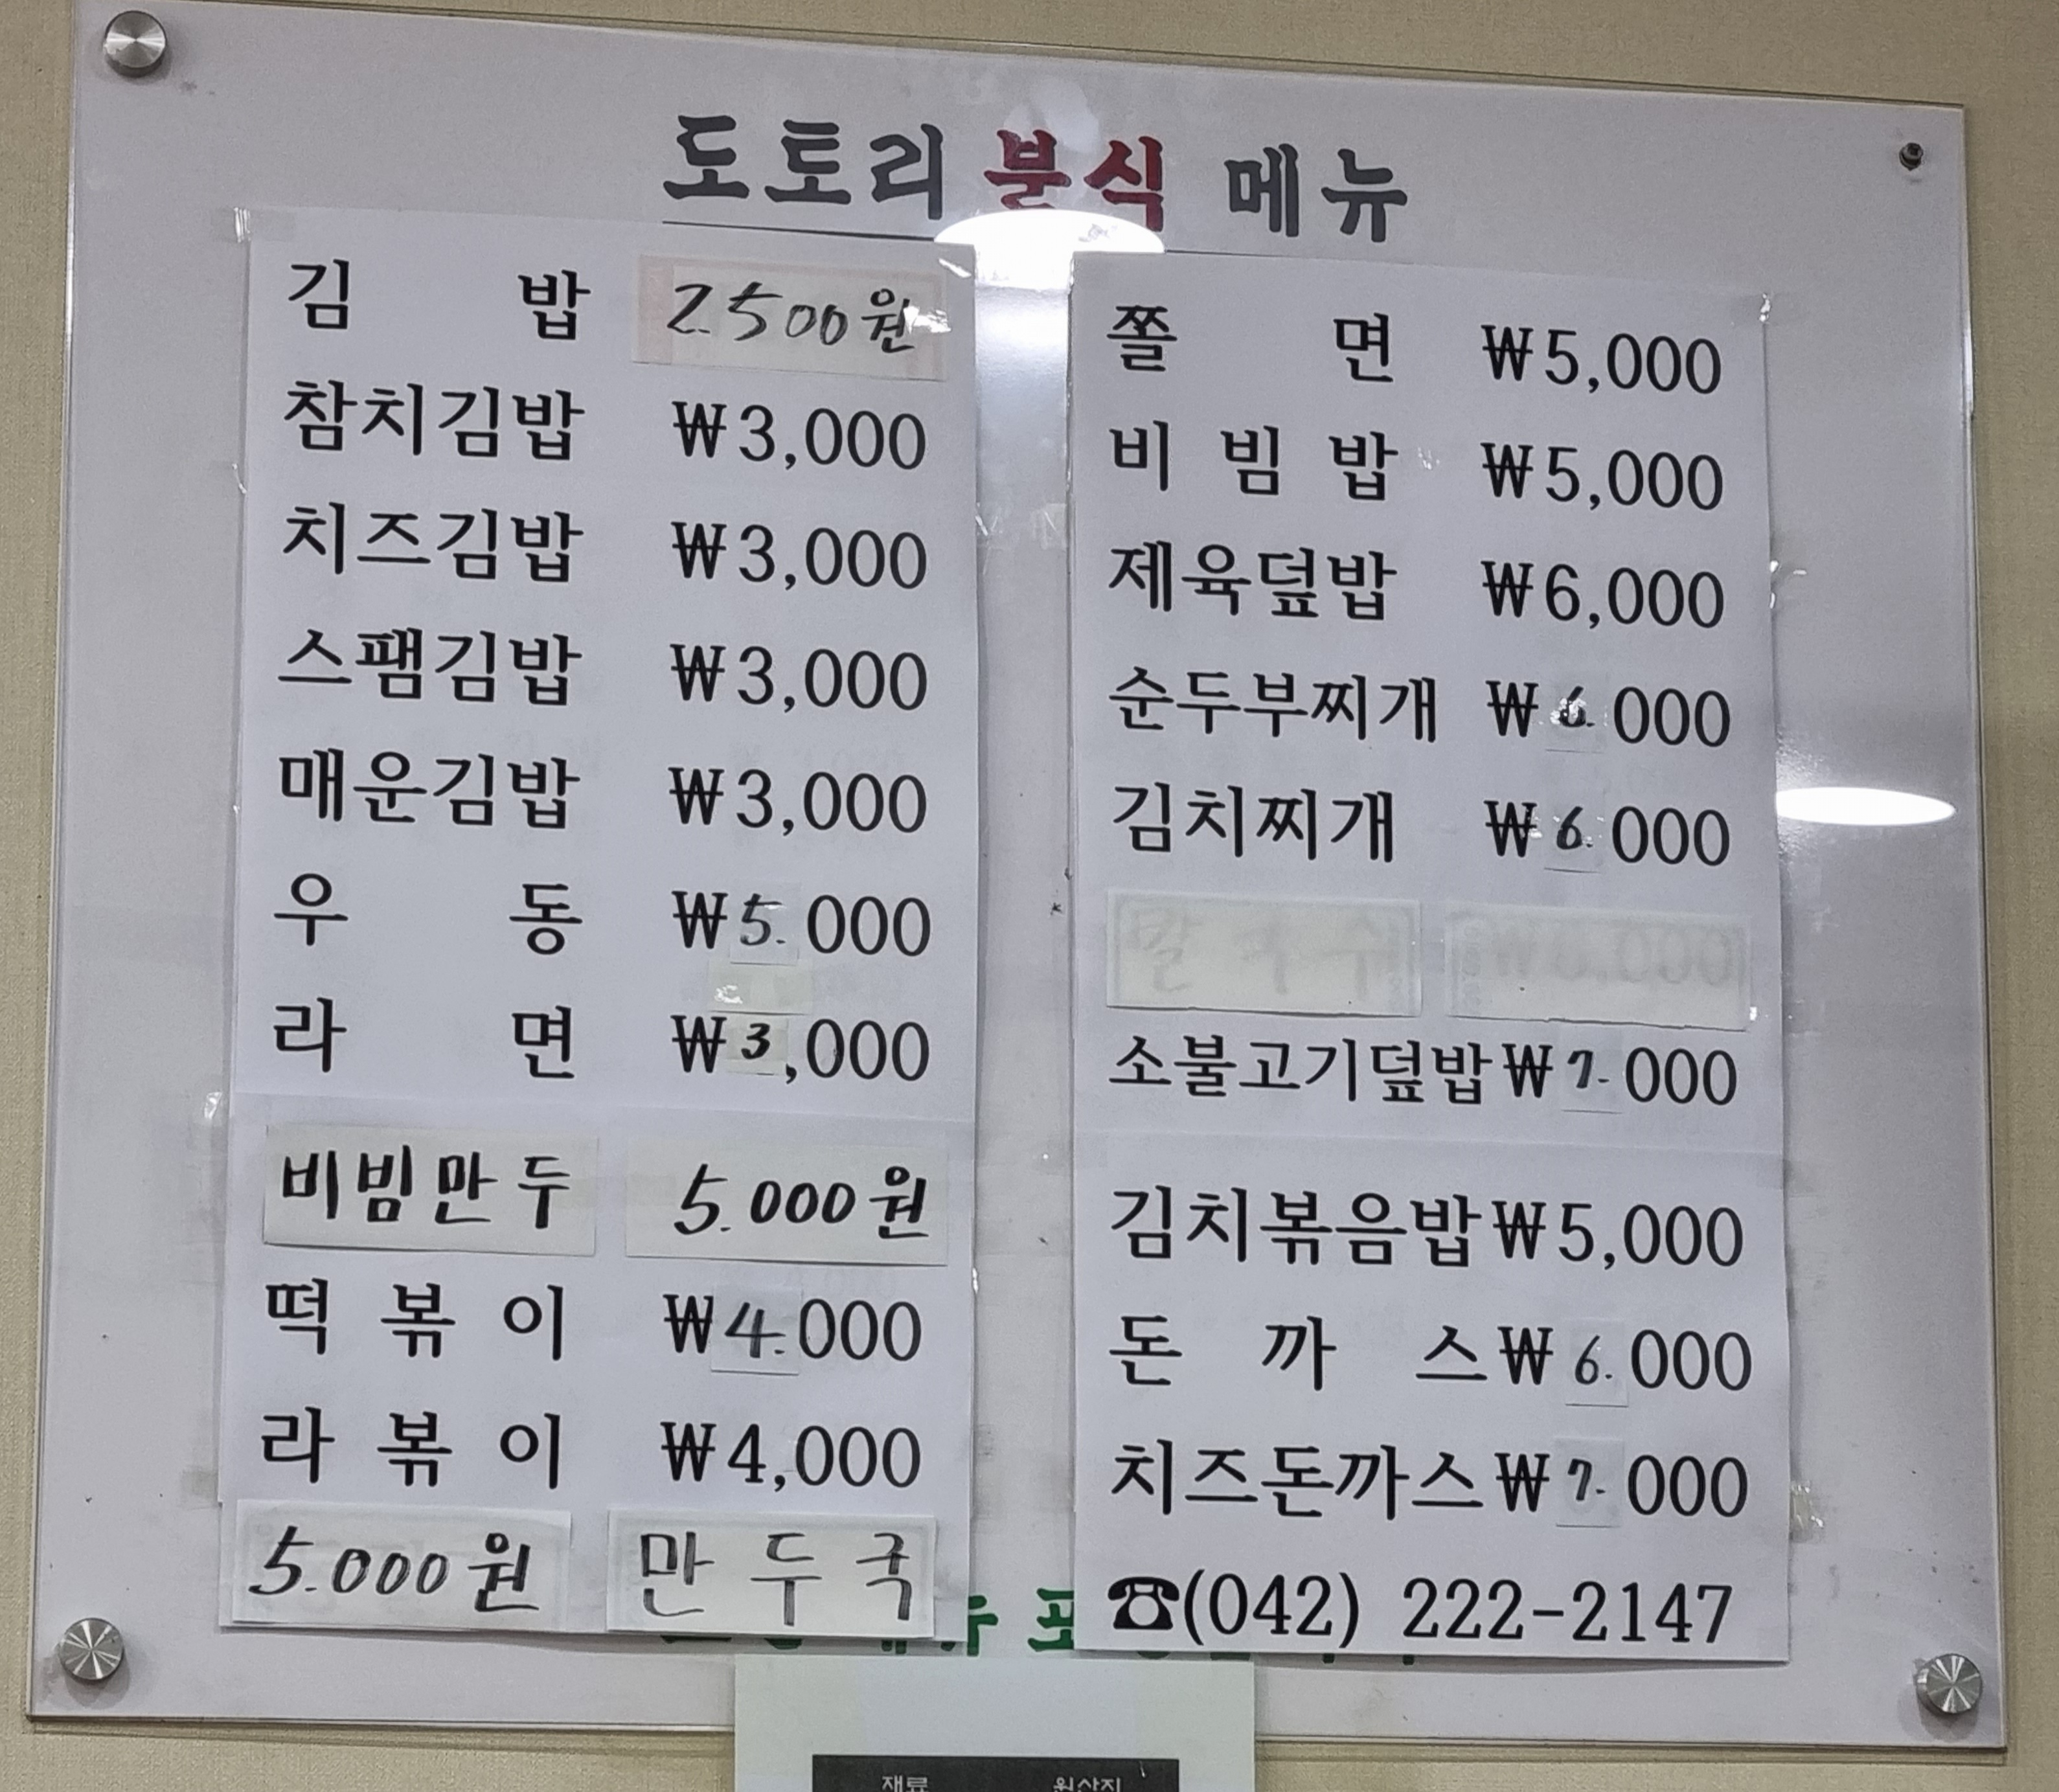 도토리 분식 메뉴
김 밥 2.500원
참치김밥 ₩3,000
치즈김밥 ₩3,000
스팸김밥 ₩3,000
매운김밥 ₩3,000
우 동 ₩5.000
라 면 ₩3,000
비빔만두 5.000원
떡 볶 이 ₩4.000
라 볶 이 ₩4,000
5.000원 만두국
쫄 면 ₩5,000
비 빔 밥 ₩5,000
제육덮밥 ₩6,000
순두부찌개 ₩6.000
김치찌개 ₩6.000
소불고기덮밥₩7.000
김치볶음밥₩5,000
돈 까 스₩6.000
치즈돈까스₩7.000
☎(042) 222-2147
재료 원산지